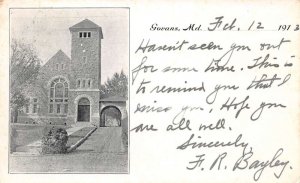 Govans, Md. Feb. 12 1913
Haven't seen you out
for some time. This is
to remind you that I
miss you. Hope you
are all well.
Sincerely,
F. R. Bayley.